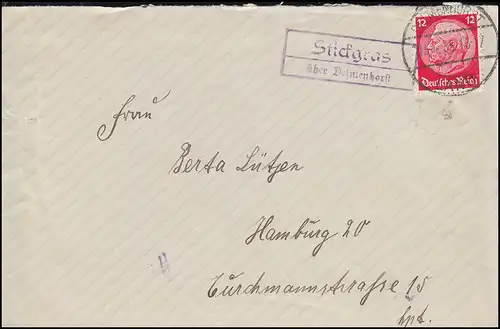 DELMENHORST
12 12
Deutsches Reich
Stickgras
über Delmenhorst
Frau
Berta Lütjen
Hamburg 20
Curchmannstrasse 15
hpt.